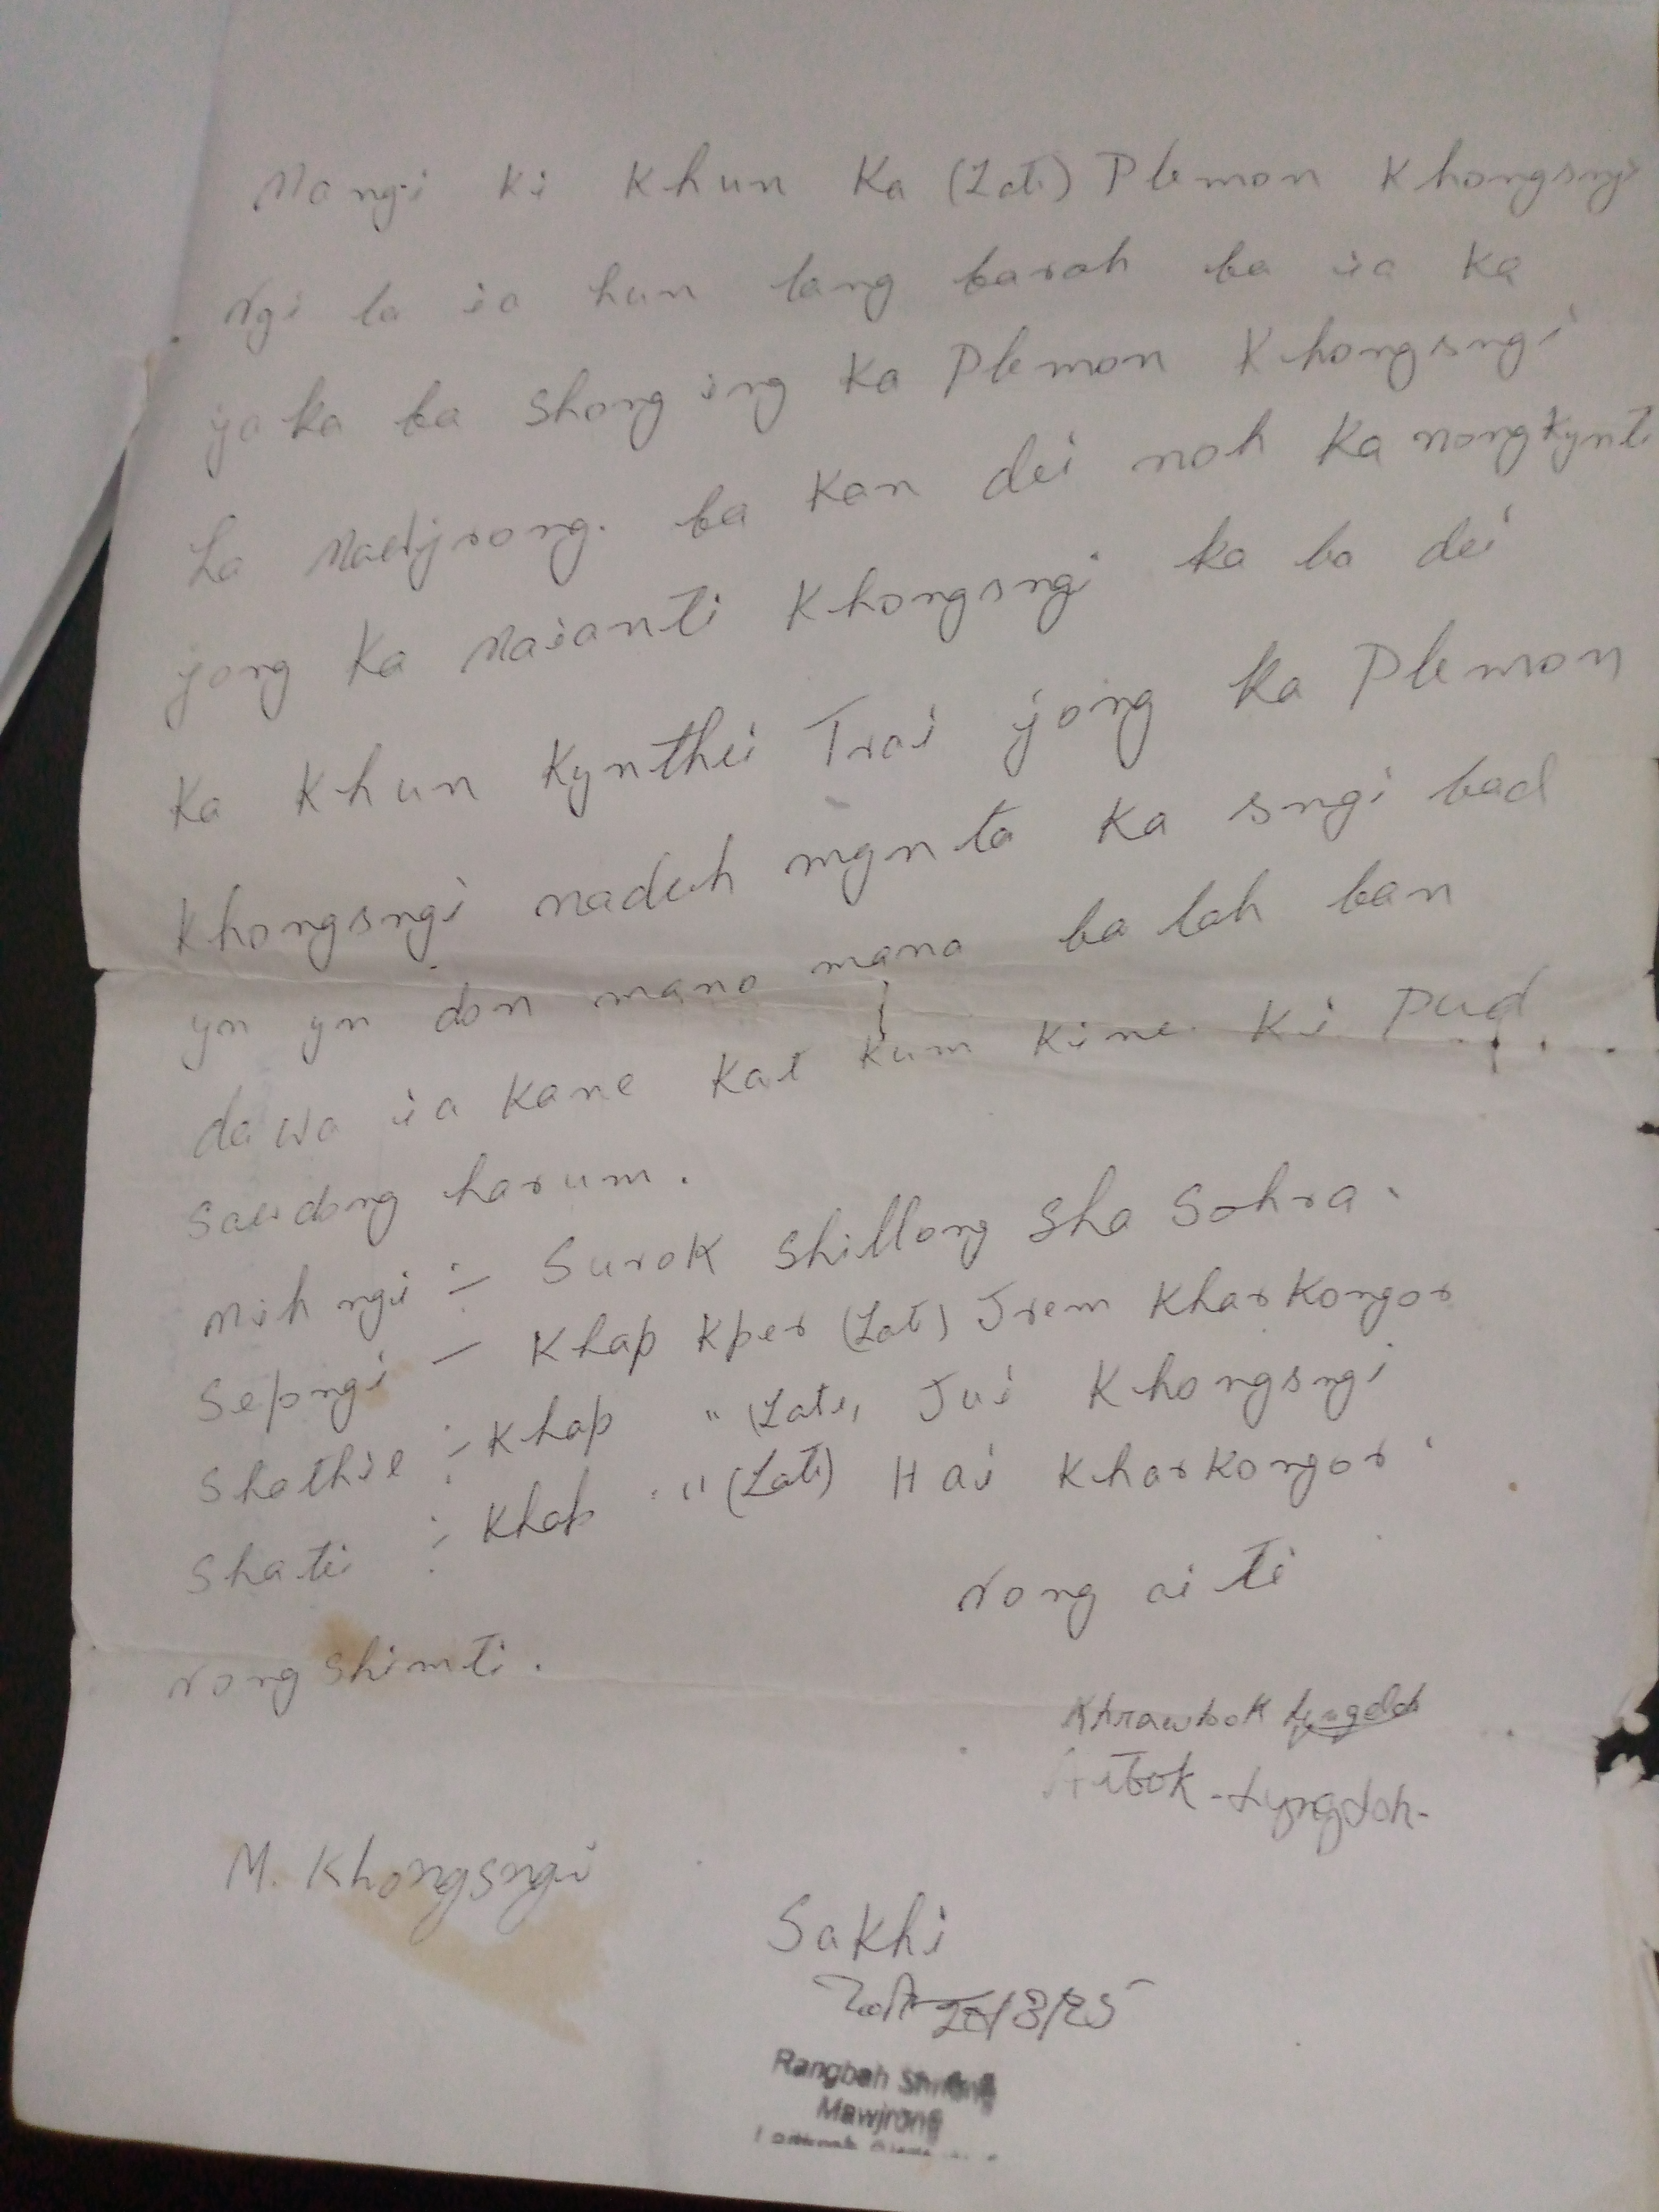 Nangi ki Khun Ka (Late) Plemon Khongsngi
Ngi la ia hun lang baroh ba ia ka
jaka ba shong ing Ka Plemon Khongsngi
ha Mawjrong. ba Kan dei noh Ka nongkynti
jong Ka Maianti Khongsngi ka ba dei
Ka Khun Kynthei Trai jong ka Plemon
Khongsngi naduh mynta ka sngi bad
yn yn don mano mano ba lah ban
dawa ia Kane Kat Kum Kine Ki Pud
Sawdong harum.
Mih ngi :- Surok Shillong Sha Sohra.
Sepngi - Khap Kper (Late) Jrem Kharkongor
Shathie :- Khap " (Late) Jui Khongsngi
Shati :- Khap " (Late) Hai Kharkongor
Nong ai ti
Nong shimti.
Khrawbok Lyngdoh
Aibok Lyngdoh
M. Khongsngi
Sakhi
20/8/25
Rangbah Shnong
Mawjrong